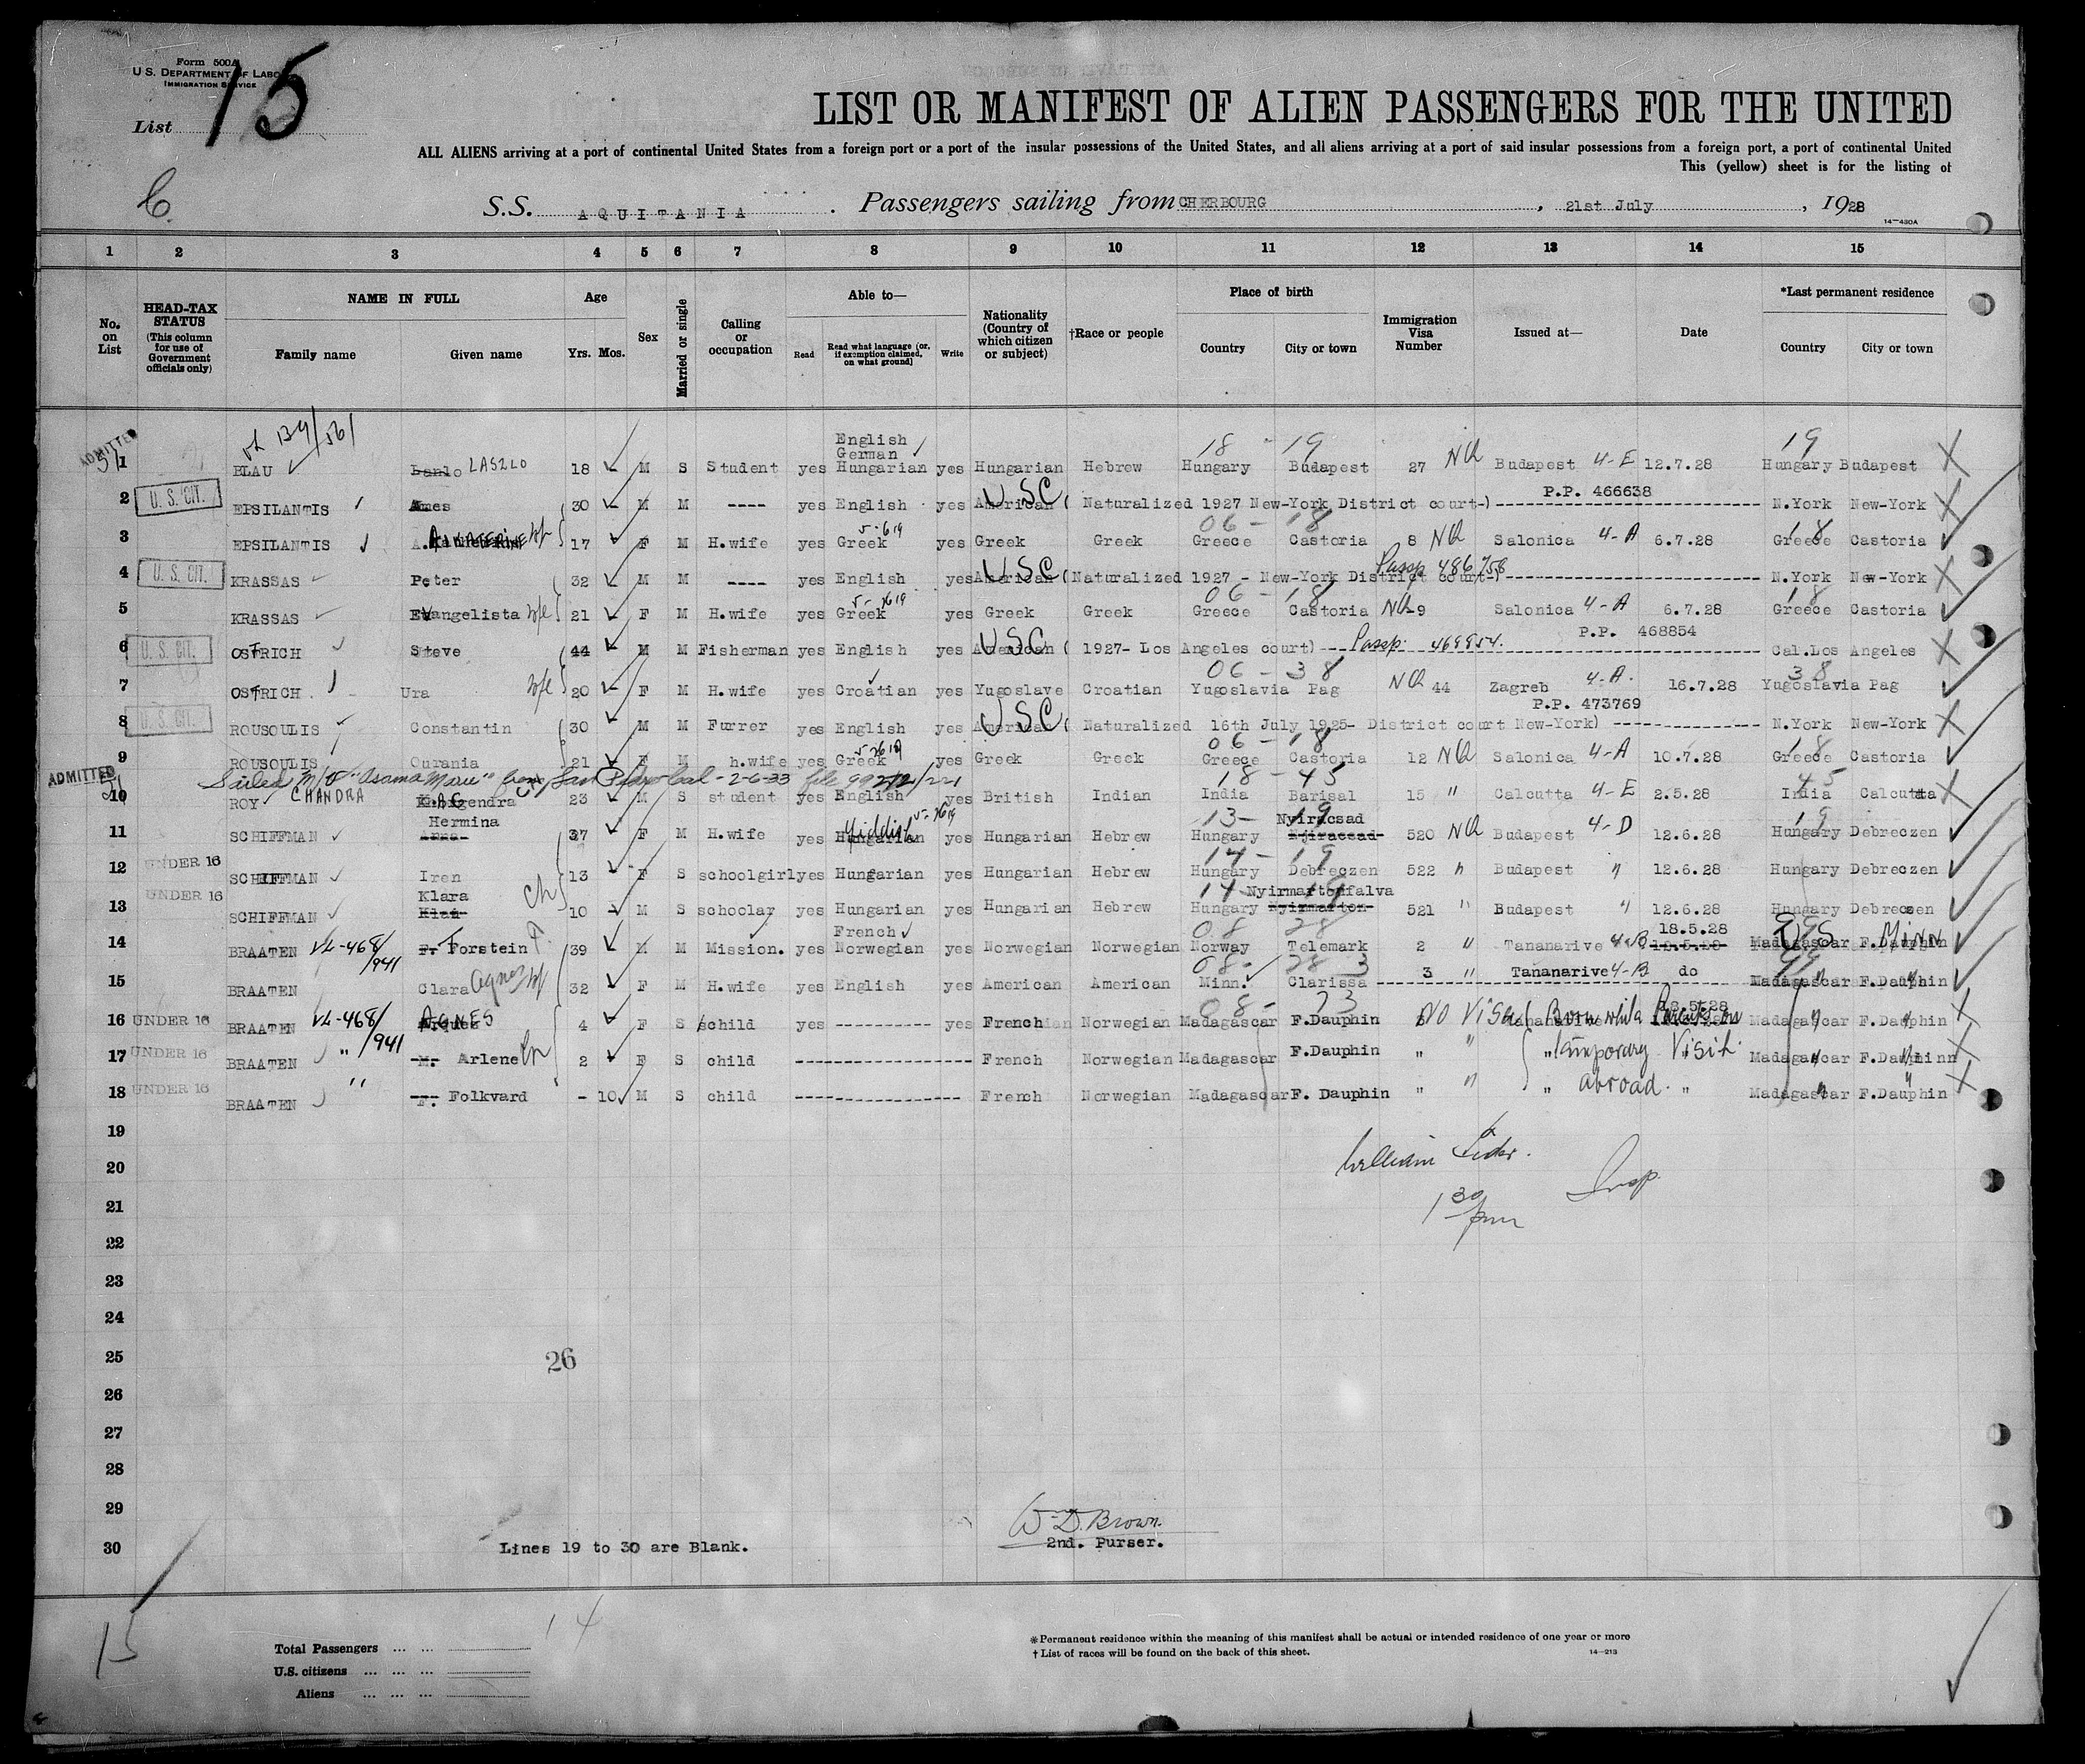 Form 500A
U.S. DEPARTMENT OF LABOR
IMMIGRATION SERVICE
List 15
LIST OR MANIFEST OF ALIEN PASSENGERS FOR THE UNITED
ALL ALIENS arriving at a port of continental United States from a foreign port or a port of the insular possessions of the United States, and all aliens arriving at a port of said insular possessions from a foreign port, a port of continental United
This (yellow) sheet is for the listing of
S.S. AQUITANIA. Passengers sailing from CHERBOURG, 21st July, 1928
14—430A
1 2 3 4 5 6 7 8 9 10 11 12 13 14 15
No. on List
HEAD-TAX STATUS (This column for use of Government officials only)
NAME IN FULL
Family name Given name
Age
Yrs. Mos.
Sex
Married or single
Calling or occupation
Able to—
Read Read what language (or, if exemption claimed, on what ground) Write
Nationality (Country of which citizen or subject)
†Race or people
Place of birth
Country City or town
Immigration Visa Number
Issued at—
Date
*Last permanent residence
Country City or town
ADMITTED
English
German
18 - 19 19
1 BLAU LASZLO 18 M S Student yes Hungarian yes Hungarian Hebrew Hungary Budapest 27 NQ Budapest 4-E 12.7.28 Hungary Budapest
P.P. 466638
2 U.S. CIT. EPSILANTIS 30 M M ---- yes English yes American USC (Naturalized 1927 New-York District court-) N.York New-York
06 - 18 18
3 EPSILANTIS AIKATERINE wf 17 F M H.wife yes Greek yes Greek Greek Greece Castoria 8 NQ Salonica 4-A 6.7.28 Greece Castoria
Passp 486756
4 U.S. CIT. KRASSAS Peter 32 M M ---- yes English yes American USC (Naturalized 1927 - New-York District court-) N.York New-York
06 - 18 18
5 KRASSAS Evangelista wfe 21 F M H.wife yes Greek yes Greek Greek Greece Castoria NQ 9 Salonica 4-A 6.7.28 Greece Castoria
P.P. 468854
6 U.S. CIT. OSTRICH Steve 44 M M Fisherman yes English yes American USC ( 1927- Los Angeles court) Passp. 468854. Cal. Los Angeles
06 - 38 38
7 OSTRICH. Ura wfe 20 F M H.wife yes Croatian yes Yugoslave Croatian Yugoslavia Pag NQ 44 Zagreb 4-A. 16.7.28 Yugoslavia Pag
P.P. 473769
8 U.S. CIT. ROUSOULIS Constantin 30 M M Furrer yes English yes American USC ( Naturalized 16th July 1925- District court New-York) N.York New-York
06 - 18 18
9 ROUSOULIS Ourania 21 F M h.wife yes Greek yes Greek Greek Greece Castoria 12 NQ Salonica 4-A 10.7.28 Greece Castoria
ADMITTED
Sailed M/V "Asama Maru" from San Pedro Cal - 2-6-33
18 - 45 45
10 ROY CHANDRA 23 M S student yes English yes British Indian India Barisal 15 " Calcutta 4-E 2.5.28 India Calcutta
Hermina Yiddish 13- 19 Nyiracsad 19
11 SCHIFFMAN Anna 37 F M H.wife yes Hungarian yes Hungarian Hebrew Hungary 520 NQ Budapest 4-D 12.6.28 Hungary Debreczen
14 - 19
12 UNDER 16 SCHIFFMAN Iren 13 F S schoolgirl yes Hungarian yes Hungarian Hebrew Hungary Debreczen 522 " Budapest " 12.6.28 Hungary Debreczen
UNDER 16 Klara ch 14 - 19 Nyirmartonfalva
13 SCHIFFMAN 10 M S schoolar yes Hungarian yes Hungarian Hebrew Hungary Nyirmarton 521 " Budapest " 12.6.28 Hungary Debreczen
French 08 28 18.5.28 US MINN
14 BRAATEN VL-468/941 F. Torstein 39 M M Mission. yes Norwegian yes Norwegian Norwegian Norway Telemark 2 " Tananarive 4-B Madagascar F.Dauphin
15 BRAATEN Clara Agnes wf 32 F M H.wife yes English yes American American Minn. Clarissa 3 " Tananarive 4-B do Madagascar F.Dauphin
08 - 23 18.5.28
16 UNDER 16 BRAATEN VL-468/941 AGNES 4 F S child yes ---------- yes French Norwegian Madagascar F.Dauphin NO Visa Born while Parents on Madagascar F.Dauphin
17 UNDER 16 BRAATEN " M. Arlene 2 F S child French Norwegian Madagascar F.Dauphin " " " Temporary Visit Madagascar F.Dauphin
18 UNDER 16 BRAATEN " F. Folkvard - 10 M S child French Norwegian Madagascar F. Dauphin " " " abroad. " Madagascar F.Dauphin
19
William
20
Insp.
21
1 30 pm
22
23
24
25
26
26
27
28
29
W D. Brown.
30 Lines 19 to 30 are Blank. 2nd. Purser.
15
14
Total Passengers ... ...
U.S. citizens ... ... ...
Aliens ... ... ...
*Permanent residence within the meaning of this manifest shall be actual or intended residence of one year or more
† List of races will be found on the back of this sheet.
14—213